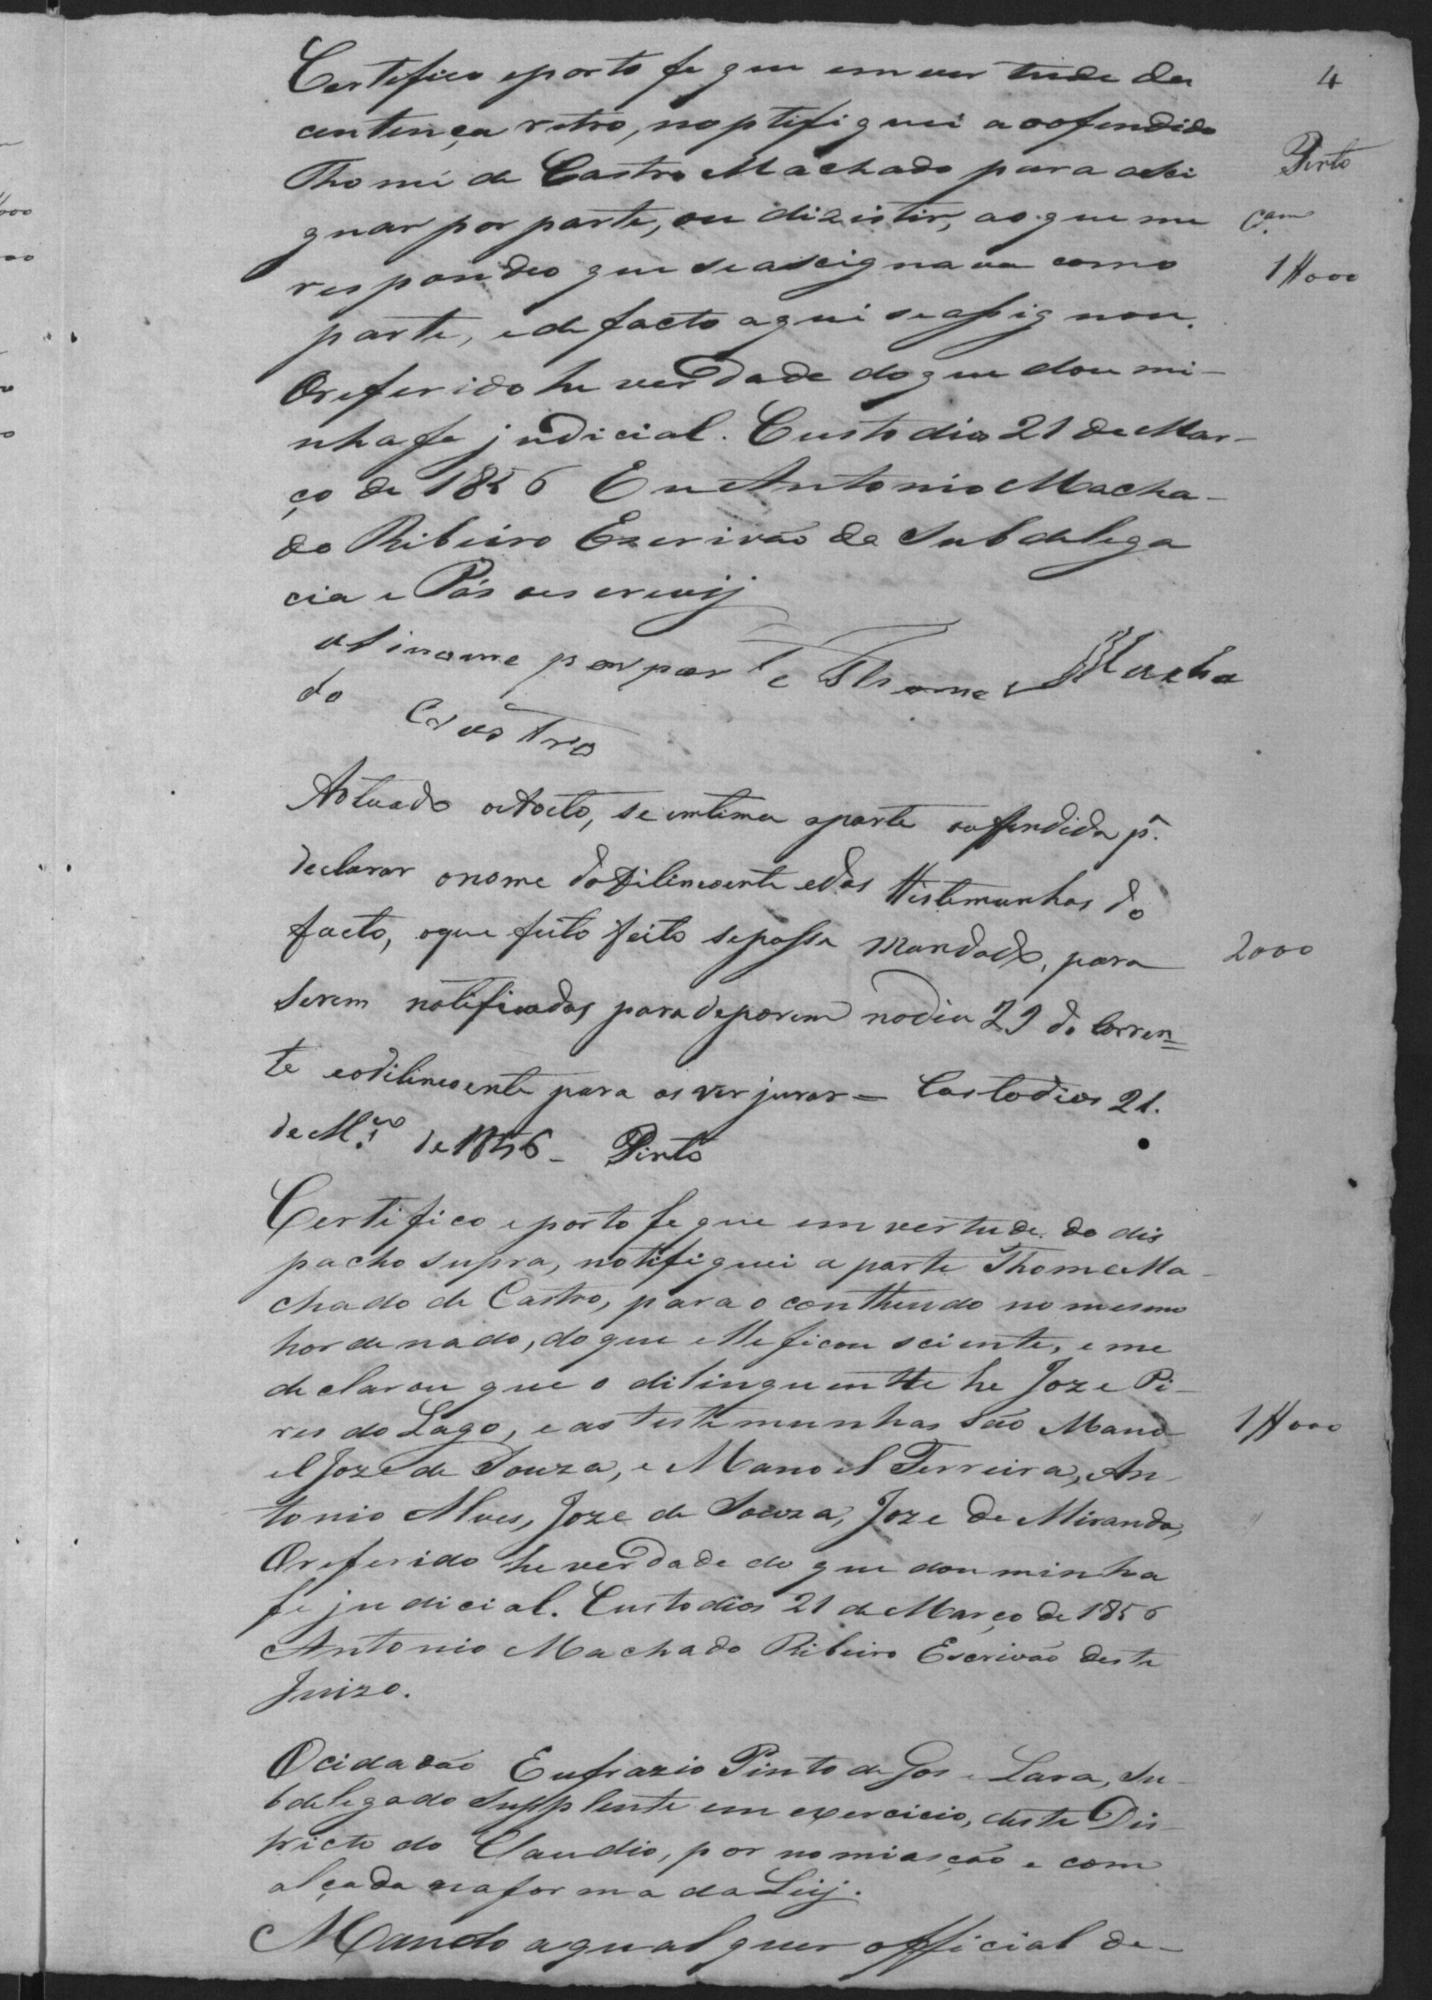 4
Certefico eporto fe que em ver tude da
centença retro, noptifi quei a oofendido
Thomé de Castro Machado para assi
gnar por parte, ou dizistir, ao que me
respondeo que seassignava como
parte, ede facto aqui seassignou.
Oreferido he verdade doque dou mi-
nhafe judicial. Custodios 21 de Mar-
ço de 1856 Eu Antonio Macha-
do Ribeiro Escrivão da Subdelega
cia e Pás oescrevij
asinome por parte Thome Macha
do Castro
Pinto
Cam
1#000
Actuado oAucto, se intime aparte offendida pª.
declarar onome doDilincoente edas testemunhas do
facto, oque feito feito sepasse Mandado, para
serem notificadas para deporem nodia 29 do Corren=
te eodilincoente para as ver jurar = Costodios 21.
de M.ço de 1856 - Pinto
2000
Certifico eporto fe que em vertude do dis
pacho supra, notifiquei a parte Thome Ma-
chado de Castro, para o contheudo no mesmo
hordenado, doque elle ficou sciente, e me
declarou que o dilinquentte he Joze Pi-
res do Lago, e as testemunhas são Mano
el Joze de Souza, e Manoel Ferreira, An-
tonio Alves, Joze de Souza, Joze de Miranda,
Oreferido he verdade do que dou minha
fe judicial. Custodios 21 de Março de 1856
Antonio Machado Ribeiro Escrivão deste
Juizo.
1#000
Ocidadão Eufrazio Pinto de Gos e Lara, Su-
bdelegado Supplente em exercicio, deste Dis-
tricto do Claudio, por nomiasção e com
alçada naforma daLeij.
Mando aqualquer official de-